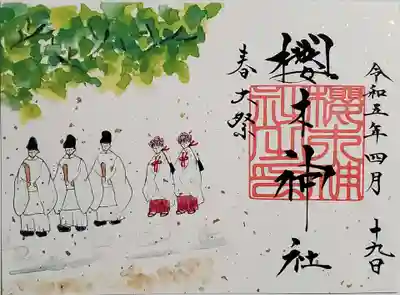 令和五年四月
十九日
櫻木神社
春大祭
櫻木神社之印